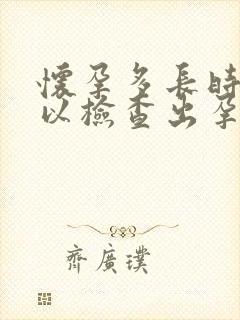 懷孕多長時
以檢查出孕
齊廣璞